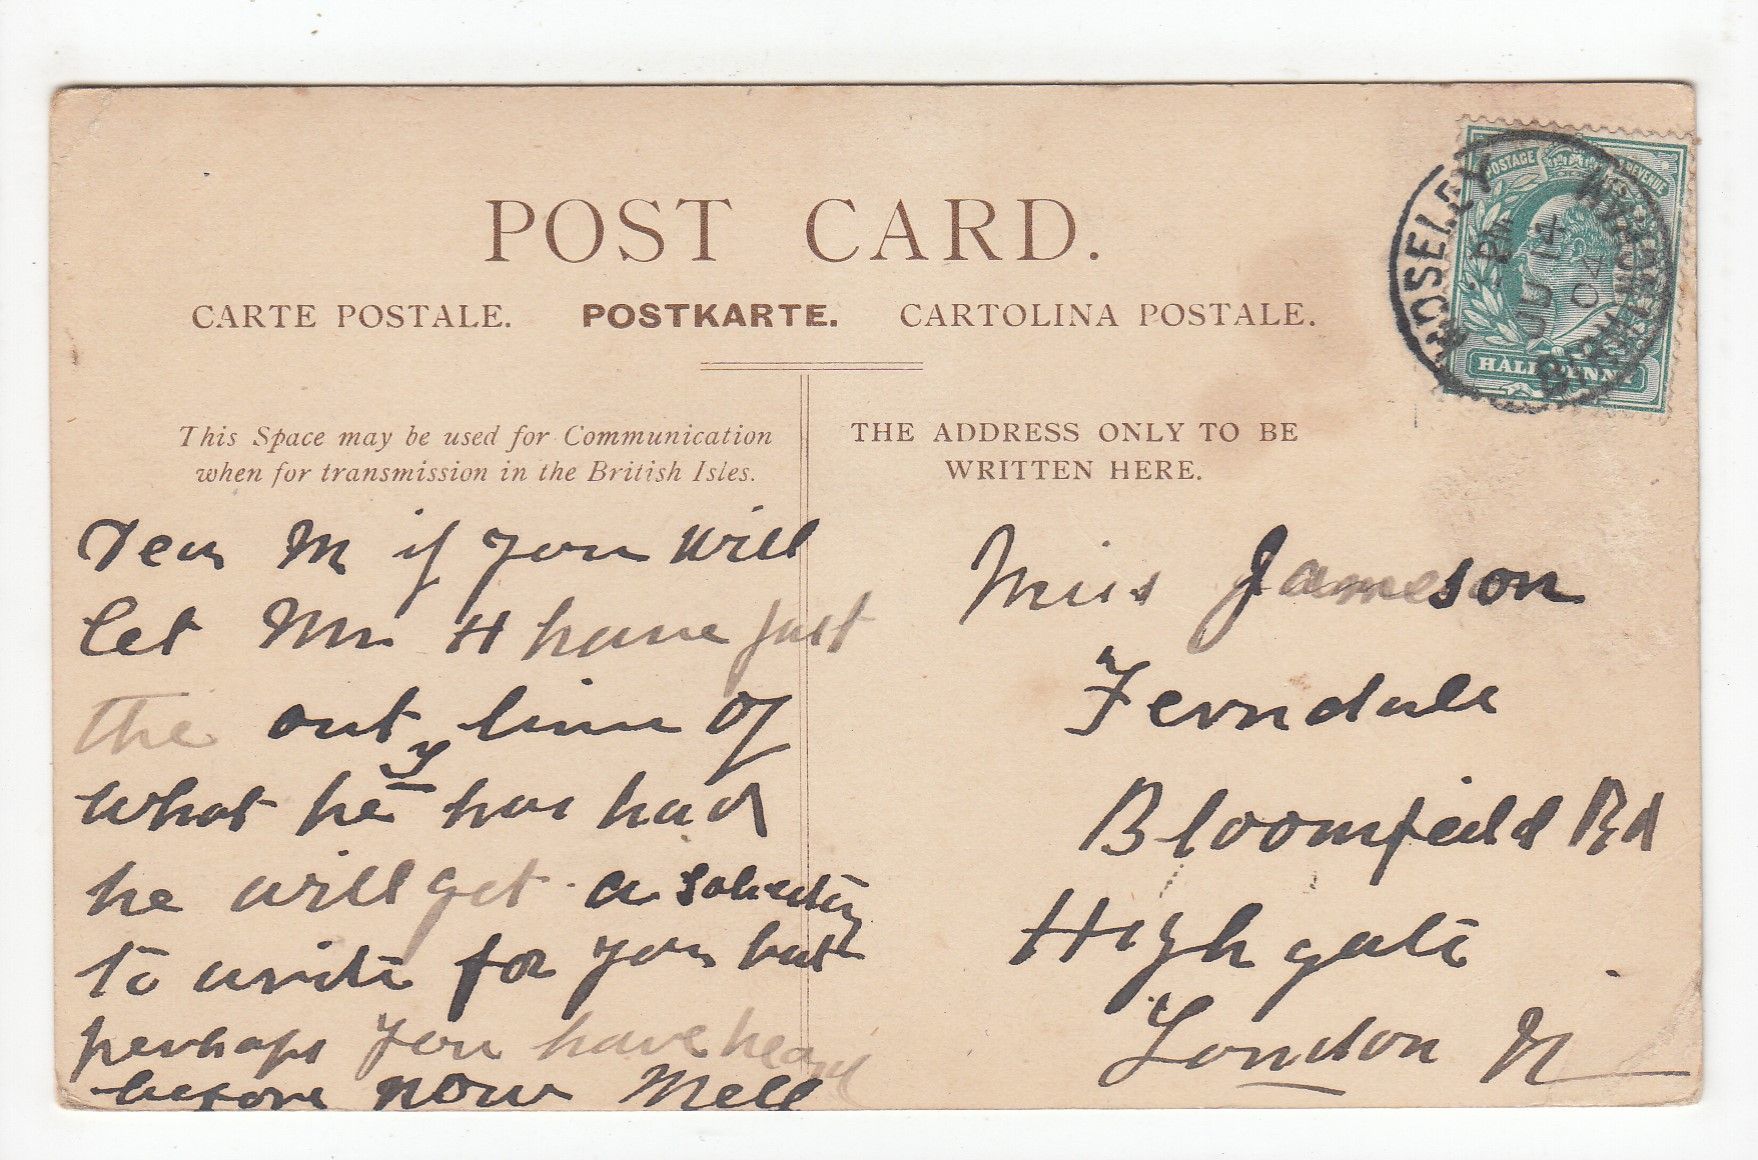 POST CARD.
CARTE POSTALE. POSTKARTE. CARTOLINA POSTALE.
This Space may be used for Communication
when for transmission in the British Isles.
Dear M if you will
let Mr H have just
the out line of
what he has had
he will get a
to write for you but
perhaps you have heard
before now Nell
THE ADDRESS ONLY TO BE
WRITTEN HERE.
Miss Jameson
Ferndale
Bloomfield Rd
Highgate
London N
POSTAGE REVENUE
HALFPENNY
MOSELEY BIRMINGHAM
PM
JU 14
04